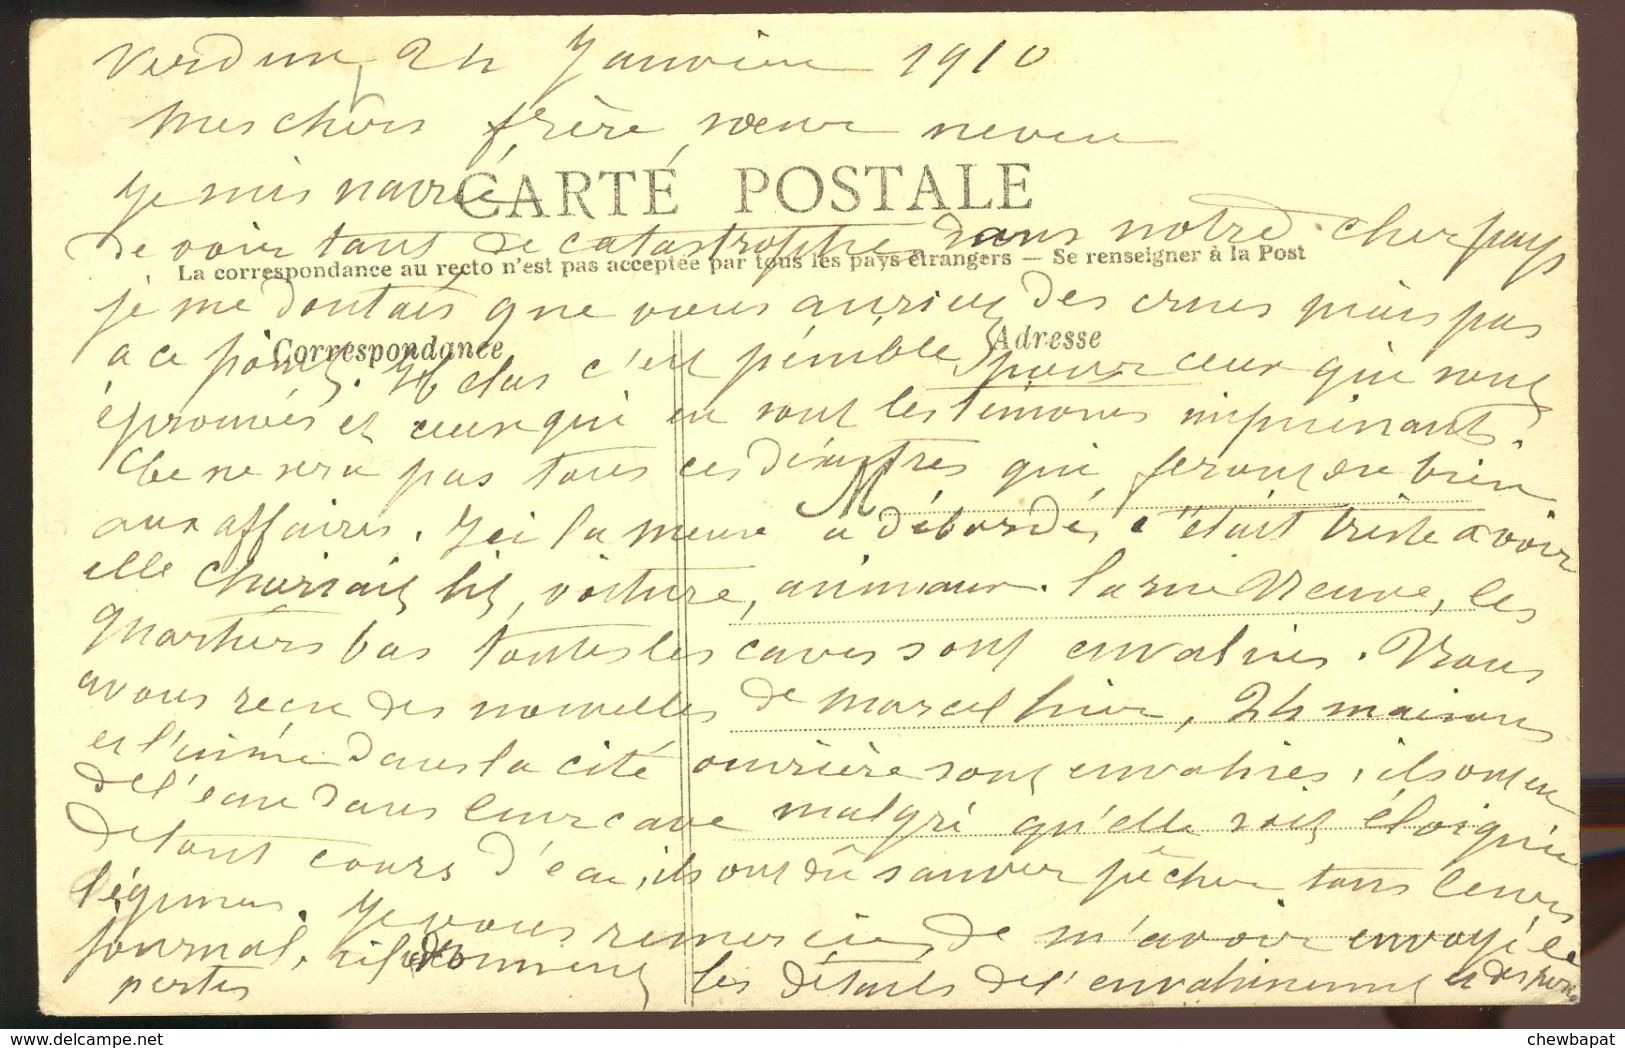 Verdun, 24 Janvier 1910
Mes chers frère, sœur neveu
CARTE POSTALE
Je suis navré
de voir tant de catastrophes dans notre cher pays
La correspondance au recto n'est pas acceptée par tous les pays étrangers — Se renseigner à la Post
je me doutais que vous auriez des crues mais pas
Correspondance
Adresse
a ce point. Hélas c'est pénible pour ceux qui sont
éprouvés et ceux qui en sont les témoins impuissants.
Ce ne sera pas tous ces désastres qui feront du bien
M
aux affaires. Ici la Meuse a débordé, c'était triste a voir
elle charriait lits, voiture, animaux. la rue Neuve, les
quartiers bas toutes les caves sont envahies. Nous
avons recu des nouvelles de Marcel hier, 24 maisons
et l'usine dans la cité ouvrière sont envahies, ils ont eu
de l'eau dans leur cave malgré qu'elle soit éloignée
de tout cours d'eau, ils ont dû sauver pêcher tous leurs
légumes. Je vous remercie de m'avoir envoyé le
journal, ils donnent les détails de l'envahissement et des
pertes
chewbapat